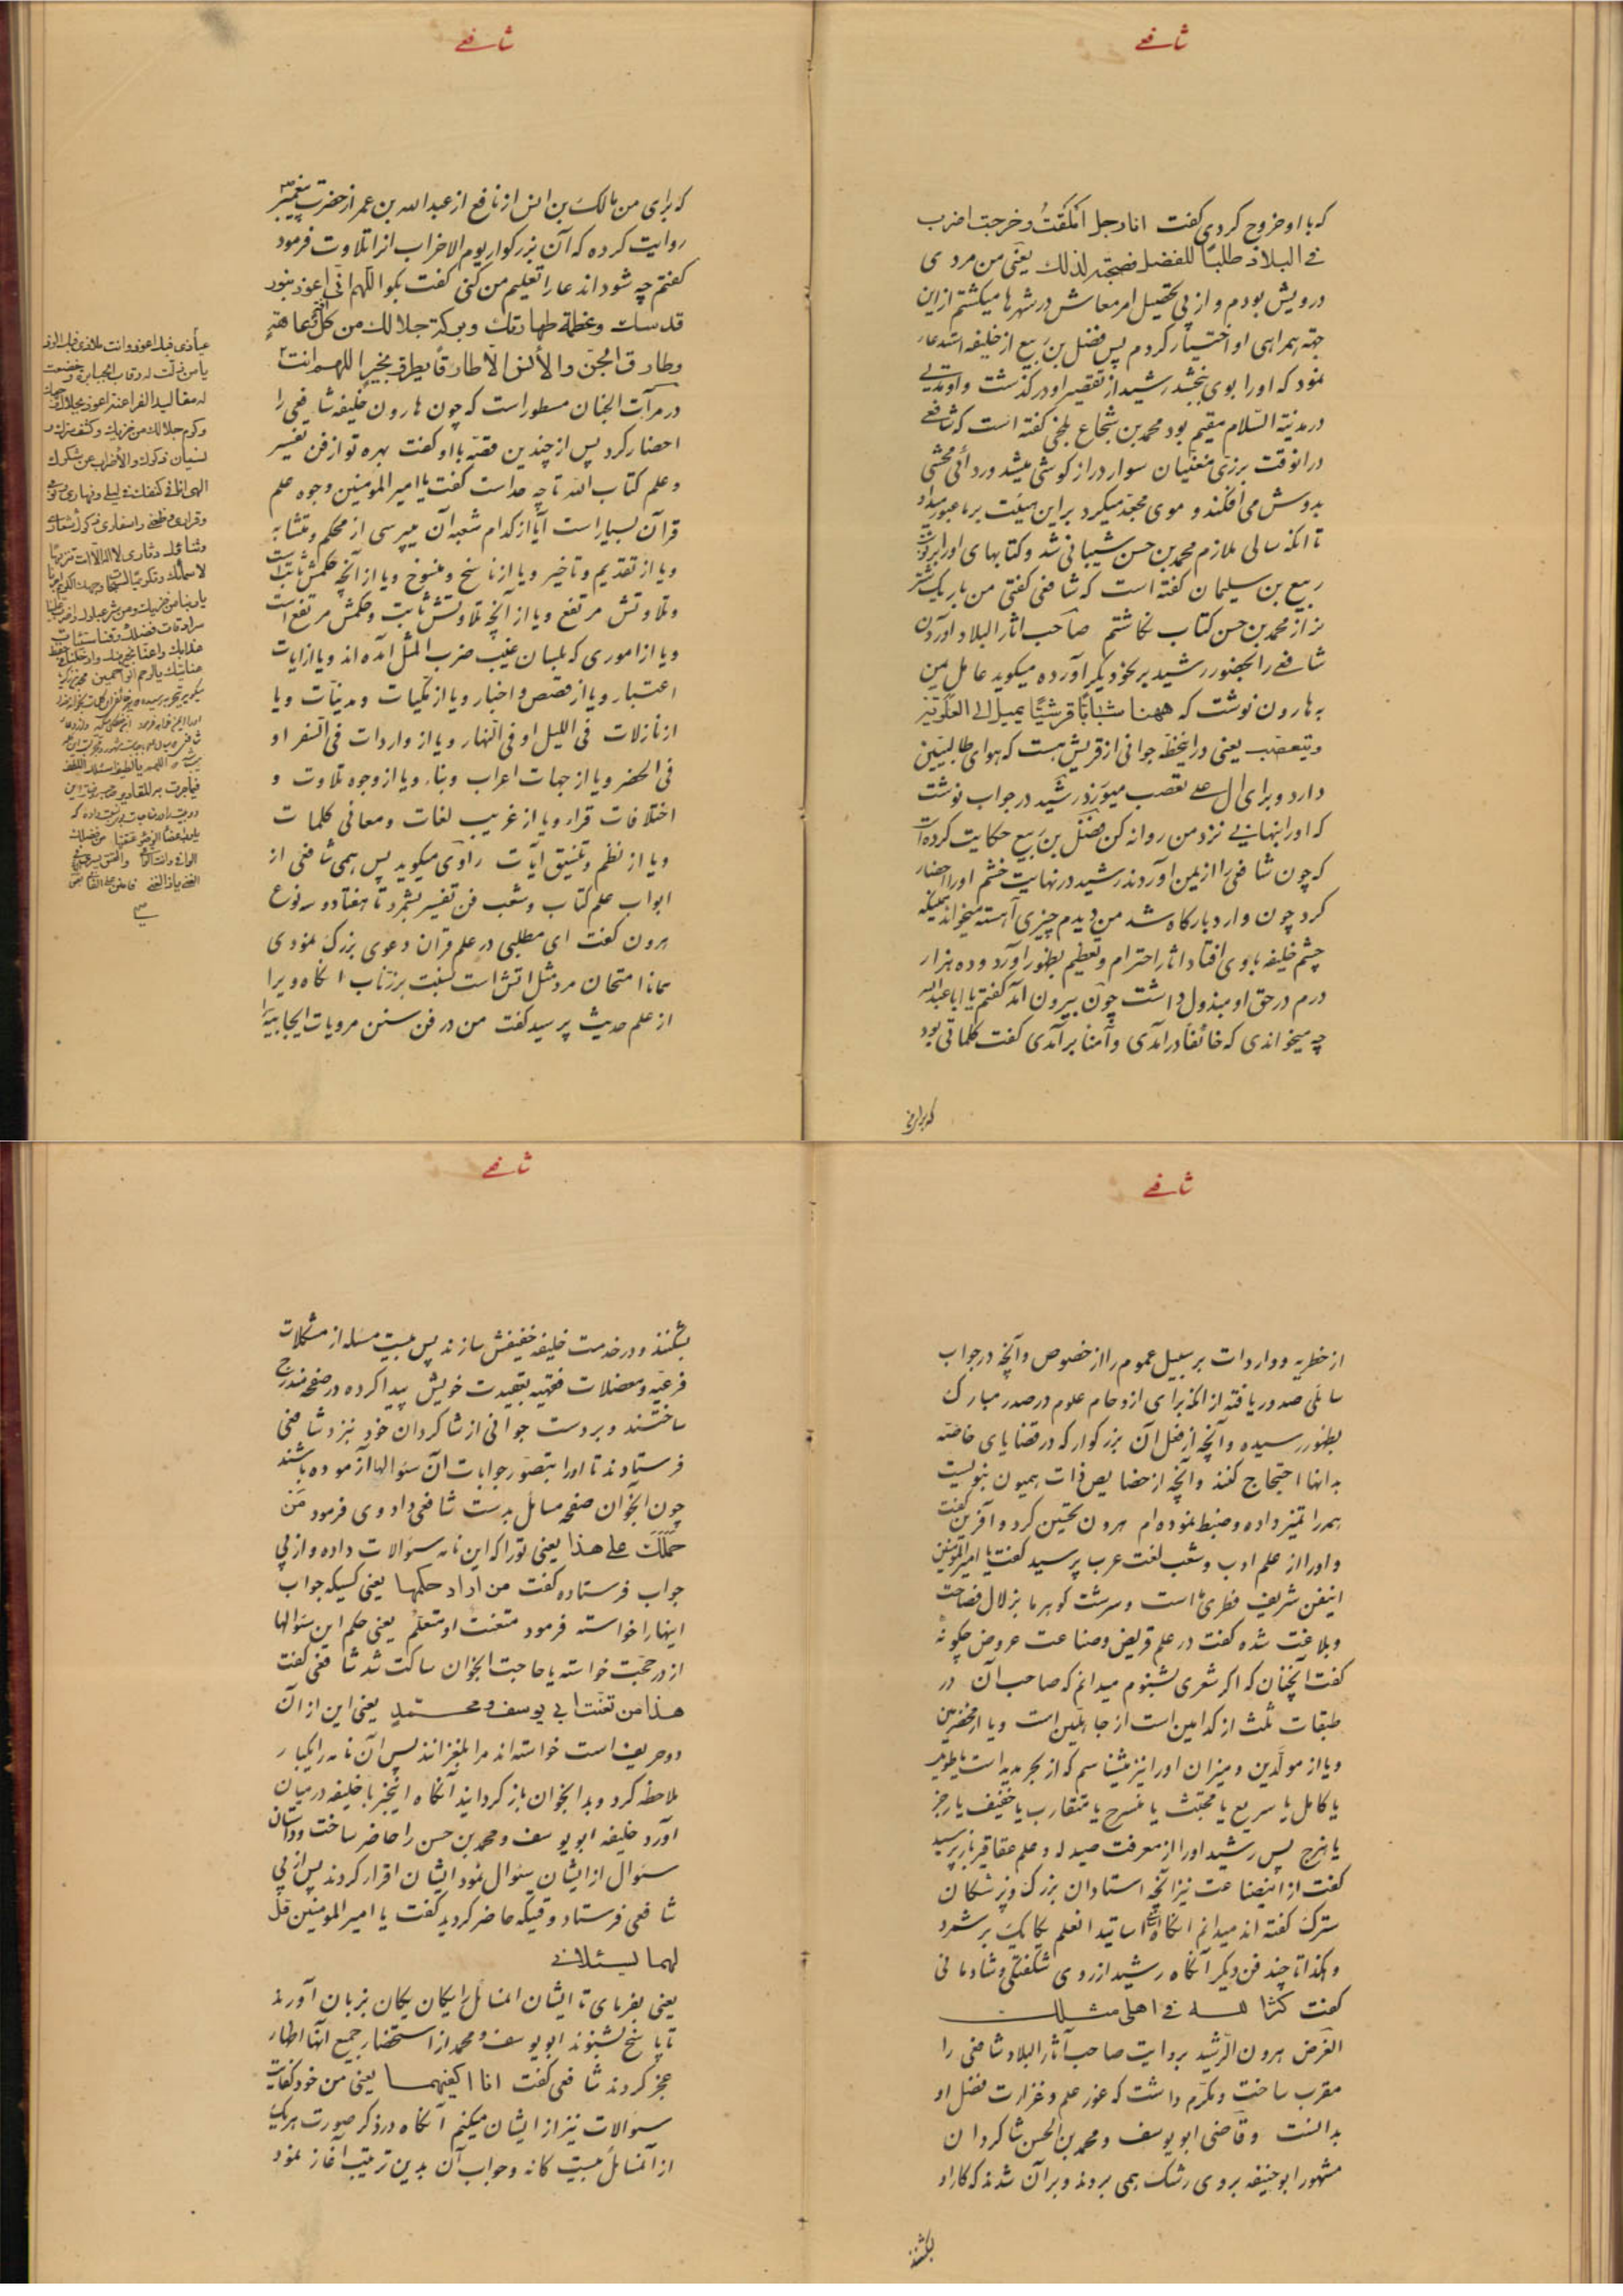 شافعی
که با او خروج کردی کفت انا رجل املقتُ و خرجت اضرب
فی البلاد طلبًا للفضل فصحبته لذلك یعنی من مردی
درویش بودم و از پی تحصیل امر معاش در شهرها میکشتم از این
جهة همراهی او اختیار کردم پس فضل بن ربیع از خلیفه استدعا
نمود که او را بوی ببخشد رشید از تقصیر او درکذشت و او مدتی
در مدینة السّلام مقیم بود محمد بن شجاع بلخی کفته است که شافعی
در انوقت برزی مغنّیان سوار دراز کوشی میشد و ردائی محشی
بدوش می افکند و موی مجعّد میکرد بر این هیئت بر ما عبور میداد
تا آنکه سالی ملازم محمد بن حسن شیبانی شد و کتابهای او را بنوشت
ربیع بن سلیمان کفته است که شافعی کفتی من بار یک شتر
نز از محمد بن حسن کتاب نکاشتم صاحب اثار البلاد آوردن
شافعی را بحضور رشید بر نحو دیکر آورده میکوید عامل یمن
به هارون نوشت که ههنا شابًّا قرشیًّا یمیل الی العلویّة
و یتعصّب یعنی در اینخطّه جوانی از قریش هست که هوای طالبیّین
دارد و برای ال علی تعصب میورزد رشید در جواب نوشت
که او را بنهانی نزد من روانه کن فضل بن ربیع حکایت کرده است
که چون شافعی را از یمن آوردند رشید در نهایت خشم او را احضار
کرد چون وارد بارکاه شد من دیدم چیزی آهسته میخواند همینکه
چشم خلیفه باوی افتاد اثار احترام و تعظیم بظهور آورد و ده هزار
درم در حق او مبذول داشت چون بیرون آمد کفتم یا ابا عبد الله
چه میخواندی که خائفا در آمدی و آمنا بر آمدی کفت کلماتی بود
که برای
شافعی
که برای من مالک بن انس از نافع از عبدالله بن عمر از حضرت پیغمبر ص
روایت کرده که آن بزرکوار یوم الاحزاب انرا تلاوت فرمود
کفتم چه شود اند عا را تعلیم من کنی کفت بکو اللّهم انّی اعوذ بنور
قدسك و عظمة طهارتك و برکة جلالك من کل آفة و عاهة
و طارق الجنّ و الأنس الا طارقًا یطرق بخیرٍ اللهم انت
در مرآت الجنان مسطور است که چون هارون خلیفه شافعی را
احضار کرد پس از چندین قصّه با او کفت بهره تو از فن تفسیر
و علم کتاب الله تا چه حد است کفت یا امیر المؤمنین وجوه علم
قرآن بسیار است آیا از کدام شعبه آن میپرسی از محکم و متشابه
و یا از تقدیم و تاخیر و یا از ناسخ و منسوخ و یا از آنچه حکمش ثابت است
و تلاوتش مرتفع و یا از آنچه تلاوتش ثابت و حکمش مرتفع است
و یا از اموری که بلسان غیب ضرب المثل آمده اند و یا از ایات
اعتبار و یا از قصص و اخبار و یا از مکیات و مدنیات و یا
از نازلات فی اللیل او فی النهار و یا از واردات فی السفر او
فی الحضر و یا از جهات اعراب و بناء و یا از وجوه تلاوت و
اختلافات قرار و یا از غریب لغات و معانی کلمات
و یا از نظم و تنسیق آیات راوی میکوید پس همی شافعی از
ابواب علم کتاب و شعب فن تفسیر بشمرد تا هفتاد و سه نوع
هرون کفت ای مطلبی در علم قران دعوی بزرک نمودی
همانا امتحان مرد مثل اتش است نسبت بزرتاب انکاه ویرا
از علم حدیث پرسید کفت من در فن سنن مرویات ایجابیه را
عیاذی فبك اعوذ و انت ملاذی فبك الوذ
یا من ذلّت له رقاب الجبابرة و خضعت
له مقالید الفراعنة اعوذ بجلال وجهك
و کرم جلالك من خزیك و کشف سترك و
نسیان ذکرك و الأضراب عن شکرك
شافعی
از خطریه و واردات بر سبیل عموم را از خصوص و آنچه در جواب
سائلی صدور یافته از انکه برای ازدحام علوم در صدر مبارک
بظهور رسیده و آنچه از فعل آن بزرکوار که در قضایای خاصّه
به انها احتجاج کنند و آنچه از خصایص ذات همیون نبویست
همه را تمیز داده و ضبط نموده ام هرون تحسین کرد و آفرین کفت
و او را از علم ادب و شعب لغت عرب پرسید کفت یا امیر المؤمنین
اینفن شریف فطری ما است و سرشت کوهر ما بزلال فصاحت
و بلاغت شده کفت در علم قریض و صناعت عروض چکونهٔ
کفت آنچنان که اکر شعری بشنوم میدانم که صاحب آن در
طبقات ثلث از کدامین است از جاهلیین است و یا از مخضرمین
و یا از مولّدین و میزان او را نیز میشناسم که از بحر مدید است یا طویل
یا کامل یا سریع یا مجتث یا منسرح یا متقارب یا خفیف یا رجز
یا هزج پس رشید او را از معرفت صیدله و علم عقاقیر باز پرسید
کفت از اینصناعت نیز انچه استادان بزرک و پزشکان
سترک کفته اند میدانم انکاه اسماء اساتید انعلم یکایک بر شمرد
و هکذا تا چند فن دیکر آنکاه رشید از روی شکفتکی و شادمانی
کفت کثر الله فی اهلی مثلك
الغرض هرون الرّشید بروایت صاحب آثار البلاد شافعی را
مقرب ساخت و مکرّم داشت که غور علم و غزارت فضل او
بدانست و قاضی ابو یوسف و محمد بن الحسن شاکردان
مشهور ابو حنیفه بر وی رشک همی بردند و بر آن شدند که کار او
بشکنند
شافعی
بشکنند و در خدمت خلیفه خفیفش سازند پس بیست مسئله از مشکلات
فرعیّه و معضلات فقهیّه بعقیدت خویش پیدا کرده در صفحه مندرج
ساختند و بر دست جوانی از شاکردان خود بنزد شافعی
فرستادند تا او را بتصوّر جوابات آن سئوالها آزموده باشند
چون انجوان صفحه مسائل بدست شافعی داد وی فرمود مَن
حَمَلَكَ علی هذا یعنی تو را که این نامه سئوالات داده و از پی
جواب فرستاده کفت من اراد حکمها یعنی کسیکه جواب
اینها را خواسته فرمود متعنت او متعلّم یعنی حکم این سئوالها
از در حجّت خواسته یا حاجت انجوان ساکت شد شافعی کفت
هذا من تعنّت ابی یوسف و محمّد یعنی این از آن
دو حریف است خواسته اند مرا بلغزانند پس آن نامه را یکبار
ملاحظه کرد و بدانجوان باز کردانید آنکاه اینخبر با خلیفه در میان
اورد خلیفه ابو یوسف و محمد بن حسن را حاضر ساخت و داستان
سئوال از ایشان سئوال نمود ایشان اقرار کردند پس از پی
شافعی فرستاد و قتیکه حاضر کردید کفت یا امیر المؤمنین قل
لهما لیسئلانی
یعنی بفرمای تا ایشان المسائل را یکان یکان بزبان آورند
تا پاسخ بشنوند ابو یوسف و محمد از استحضار جمیع آنها اظهار
عجز کردند شافعی کفت انا اکفیهما یعنی من خود کفایت
سئوالات نیز از ایشان میکنم آنکاه در ذکر صورت هر یک
از آنمسائل بیست کانه و جواب آن بدین ترتیب آغاز نمود